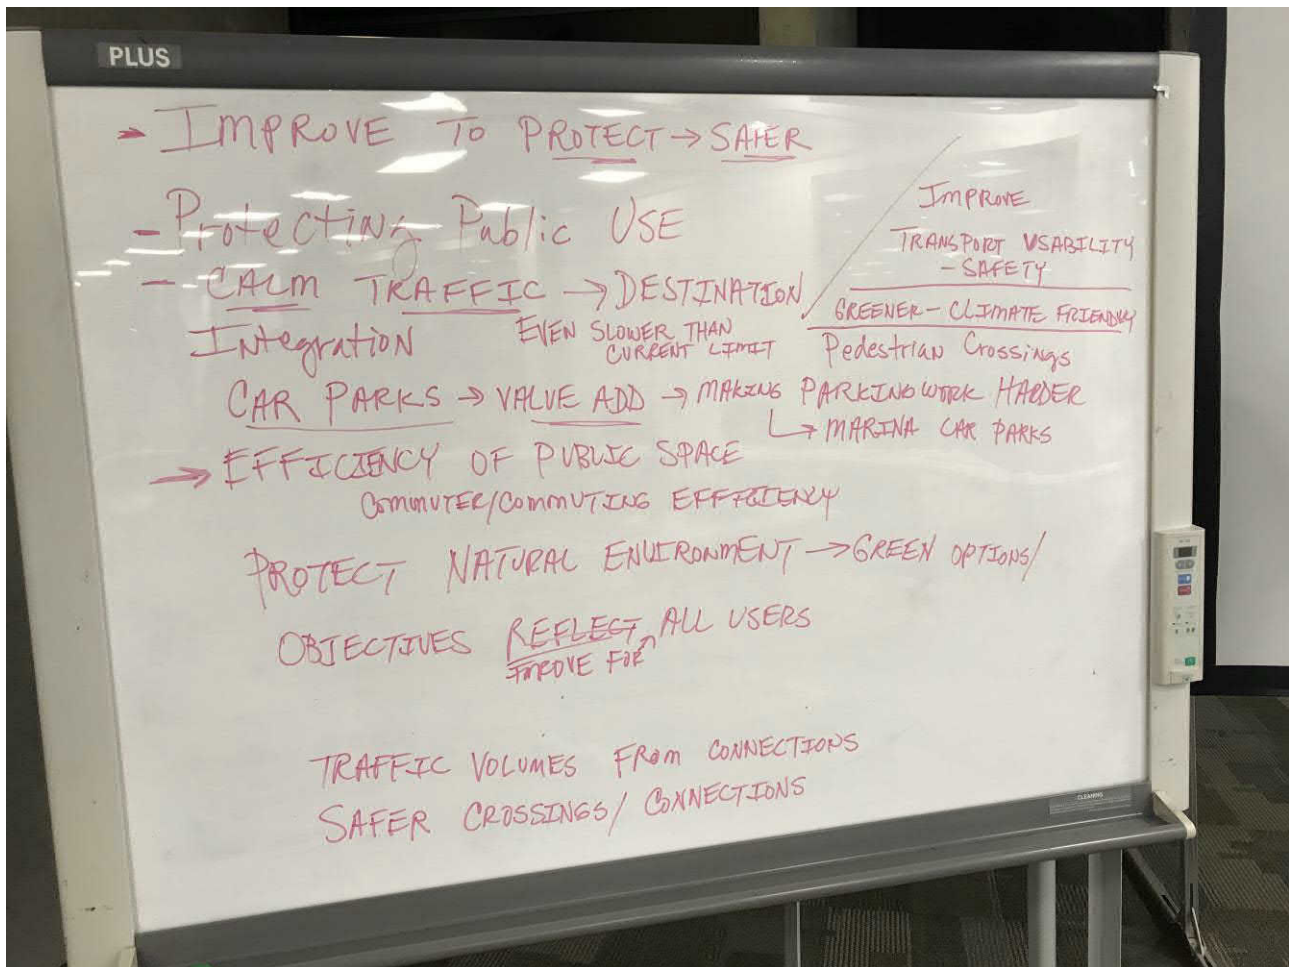 PLUS
- IMPROVE TO PROTECT → SAFER
- Protecting Public USE
- CALM TRAFFIC → DESTINATION
Integration
EVEN SLOWER THAN
CURRENT LIMIT
IMPROVE
TRANSPORT USABILITY
- SAFETY
GREENER - CLIMATE FRIENDLY
Pedestrian Crossings
CAR PARKS → VALUE ADD → MAKING PARKING WORK HARDER
↳ MARINA CAR PARKS
→ EFFICIENCY OF PUBLIC SPACE
COMMUTER/COMMUTING EFFICIENCY
PROTECT NATURAL ENVIRONMENT → GREEN OPTIONS/
OBJECTIVES REFLECT ALL USERS
IMPROVE FOR
TRAFFIC VOLUMES FROM CONNECTIONS
SAFER CROSSINGS/ CONNECTIONS
CLEANING